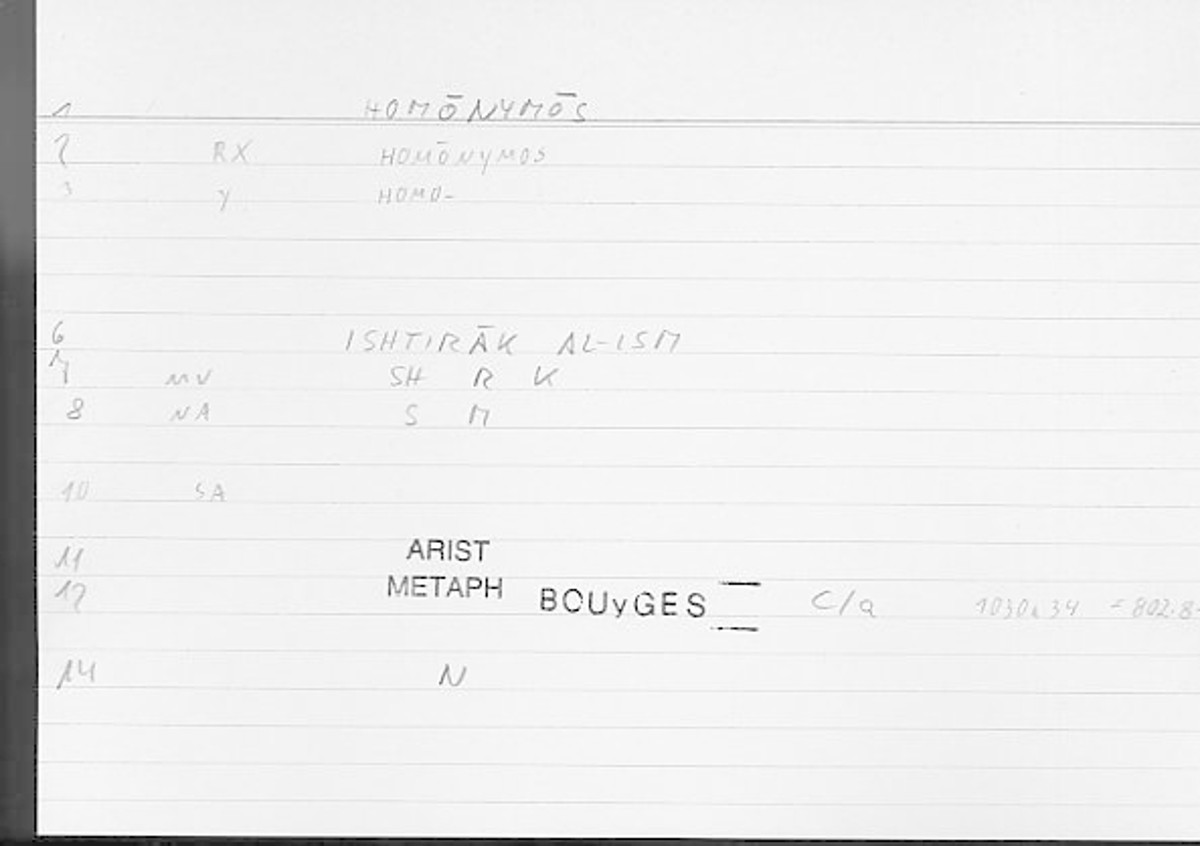 1 HOMŌNYMŌS
2 RX HOMŌNYMOS
3 y HOMO-
6 ISHTIRĀK AL-ISM
7 MV SH R K
8 NA S M
10 SA
11 ARIST
12 METAPH BOUyGES C/a 1030a34 = 802.8-
14 N